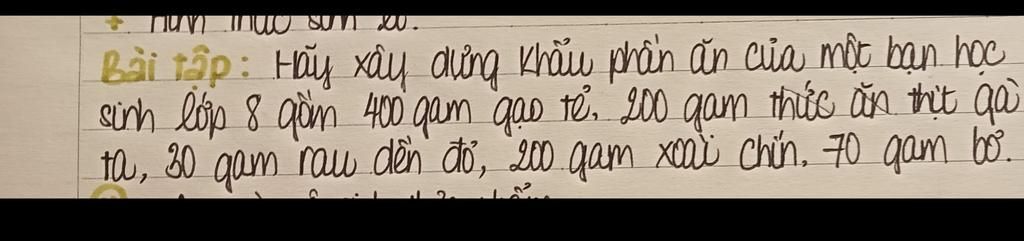 Bài tập: Hãy xây dựng khẩu phần ăn của một bạn học
sinh lớp 8 gồm 400 gam gạo tẻ, 200 gam thức ăn thịt gà
ta, 30 gam rau dền đỏ, 200 gam xoài chín, 70 gam bơ.